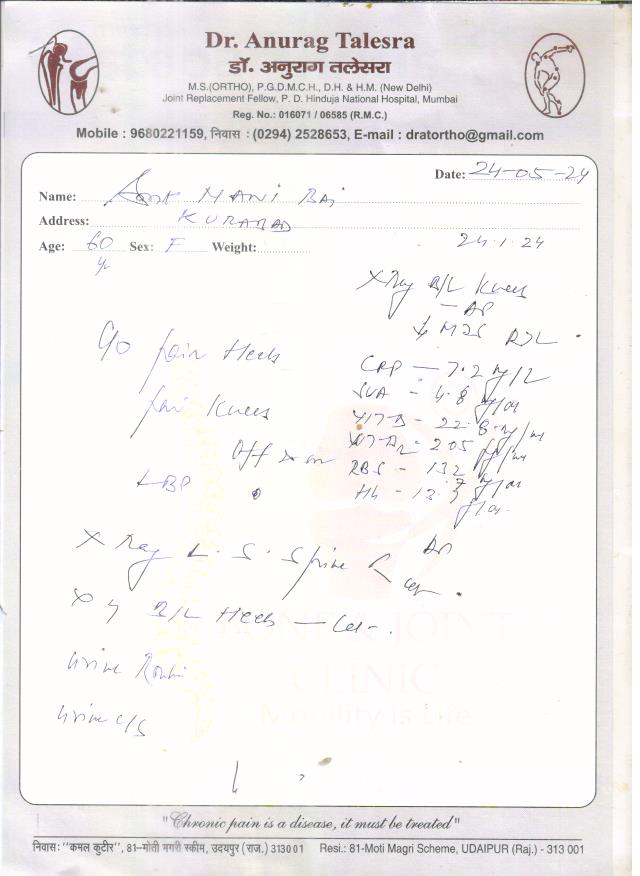 Dr. Anurag Talesra
डॉ. अनुराग तलेसरा
M.S.(ORTHO), P.G.D.M.C.H., D.H. & H.M. (New Delhi)
Joint Replacement Fellow, P. D. Hinduja National Hospital, Mumbai
Reg. No.: 016071 / 06585 (R.M.C.)
Mobile : 9680221159, निवास : (0294) 2528653, E-mail : dratortho@gmail.com
Date: 24-05-24
Name: MANI Bai
Address: KURABAD
Age: 60 yr Sex: F Weight:
24.1.24
X Ray B/L Knees
- AP
C/o pain Heels
CRP - 7.2 mg/L
SUA - 4.8 mg/dl
pain Knees
VIT-D - 22.8 ng/ml
Off & on
VIT-B12 - 205 pg/ml
LBP
RBS - 132 mg/dl
Hb - 13.7 g/dl
X Ray L. S. Spine < AP
Lat.
B/L Heels - Lat.
Urine Routine
Urine C/S
BONE & JOINT
CLINIC
Mobility is Life
"Chronic pain is a disease, it must be treated"
निवास: "कमल कुटीर", 81-मोती मगरी स्कीम, उदयपुर (राज.) 313001 Resi.: 81-Moti Magri Scheme, UDAIPUR (Raj.) - 313 001